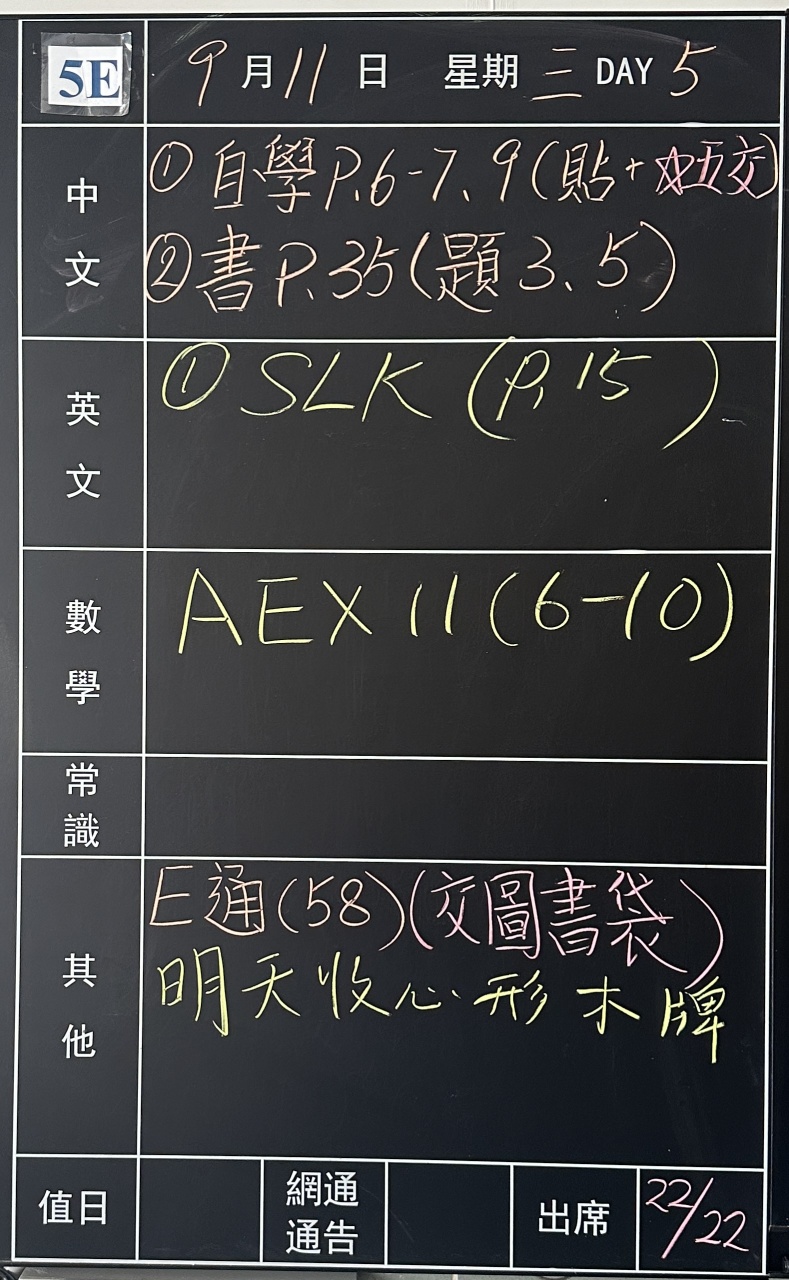 5E 9月11日 星期三 DAY 5
中文
① 自學P.6-7、9(貼+☆五交)
② 書P.35(題3、5)
英文
① SLK (P.15)
數學
AEX 11(6-10)
常識
其他
E通(58)(交圖書袋)
明天收心形木牌
值日 網通通告 出席 22/22